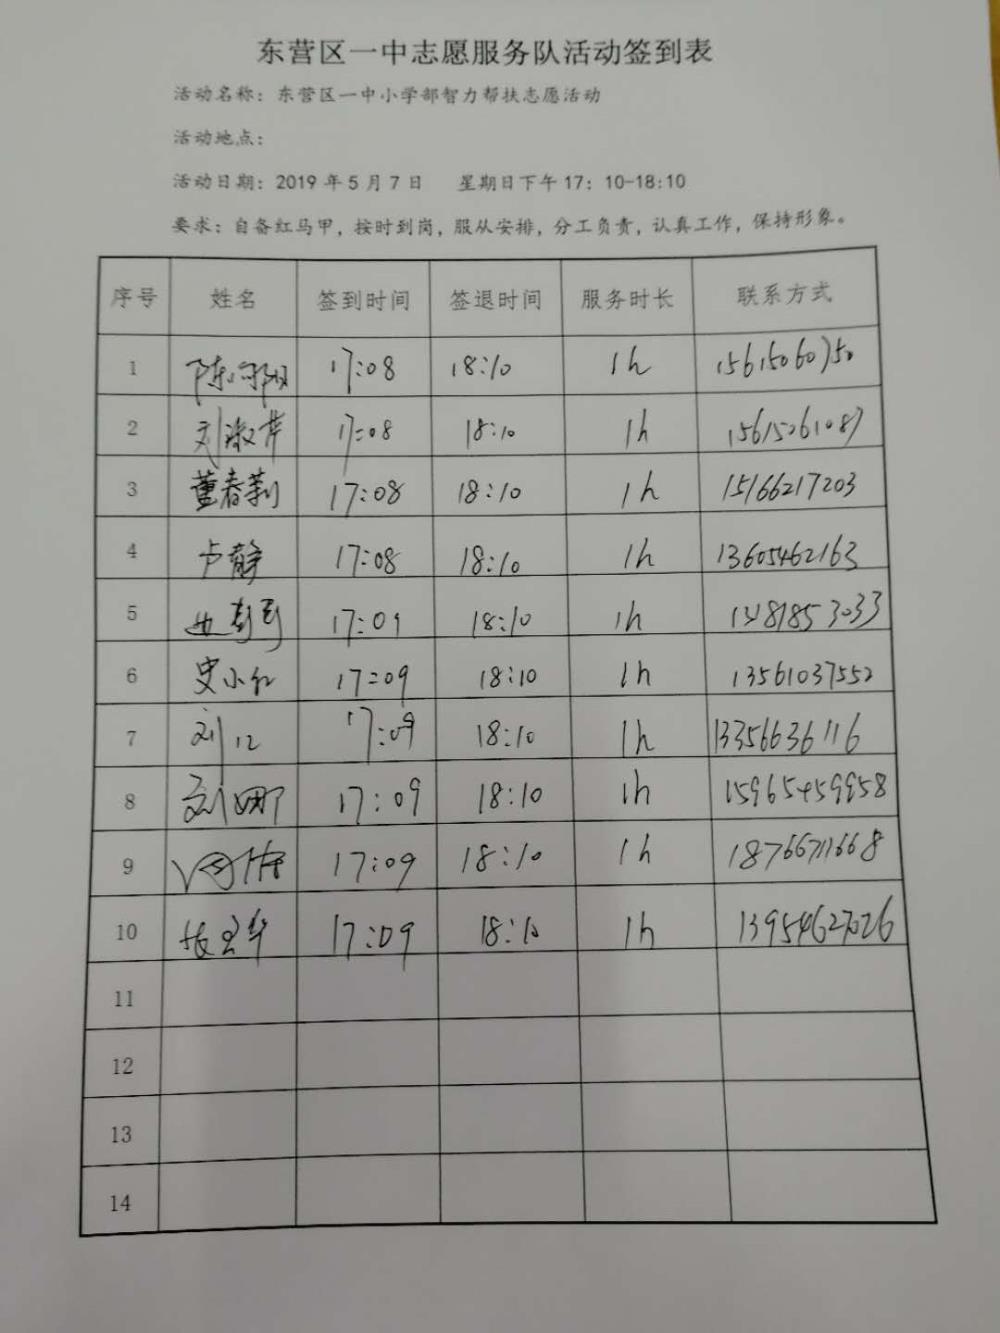 东营区一中志愿服务队活动签到表
活动名称：东营区一中小学部智力帮扶志愿活动
活动地点：
活动日期：2019年5月7日 星期日下午17：10-18:10
要求：自备红马甲，按时到岗，服从安排，分工负责，认真工作，保持形象。
序号 姓名 签到时间 签退时间 服务时长 联系方式
1 17:08 18:10 1h 15615060750
2 刘淑芹 17:08 18:10 1h 15615061087
3 董春莉 17:08 18:10 1h 15166217203
4 卢静 17:08 18:10 1h 13605462163
5 17:09 18:10 1h
6 史小红 17:09 18:10 1h 13561037552
7 刘 17:09 18:10 1h 13356636116
8 刘娜 17:09 18:10 1h
9 17:09 18:10 1h 18766711668
10 17:09 18:10 1h 13954627026
11
12
13
14